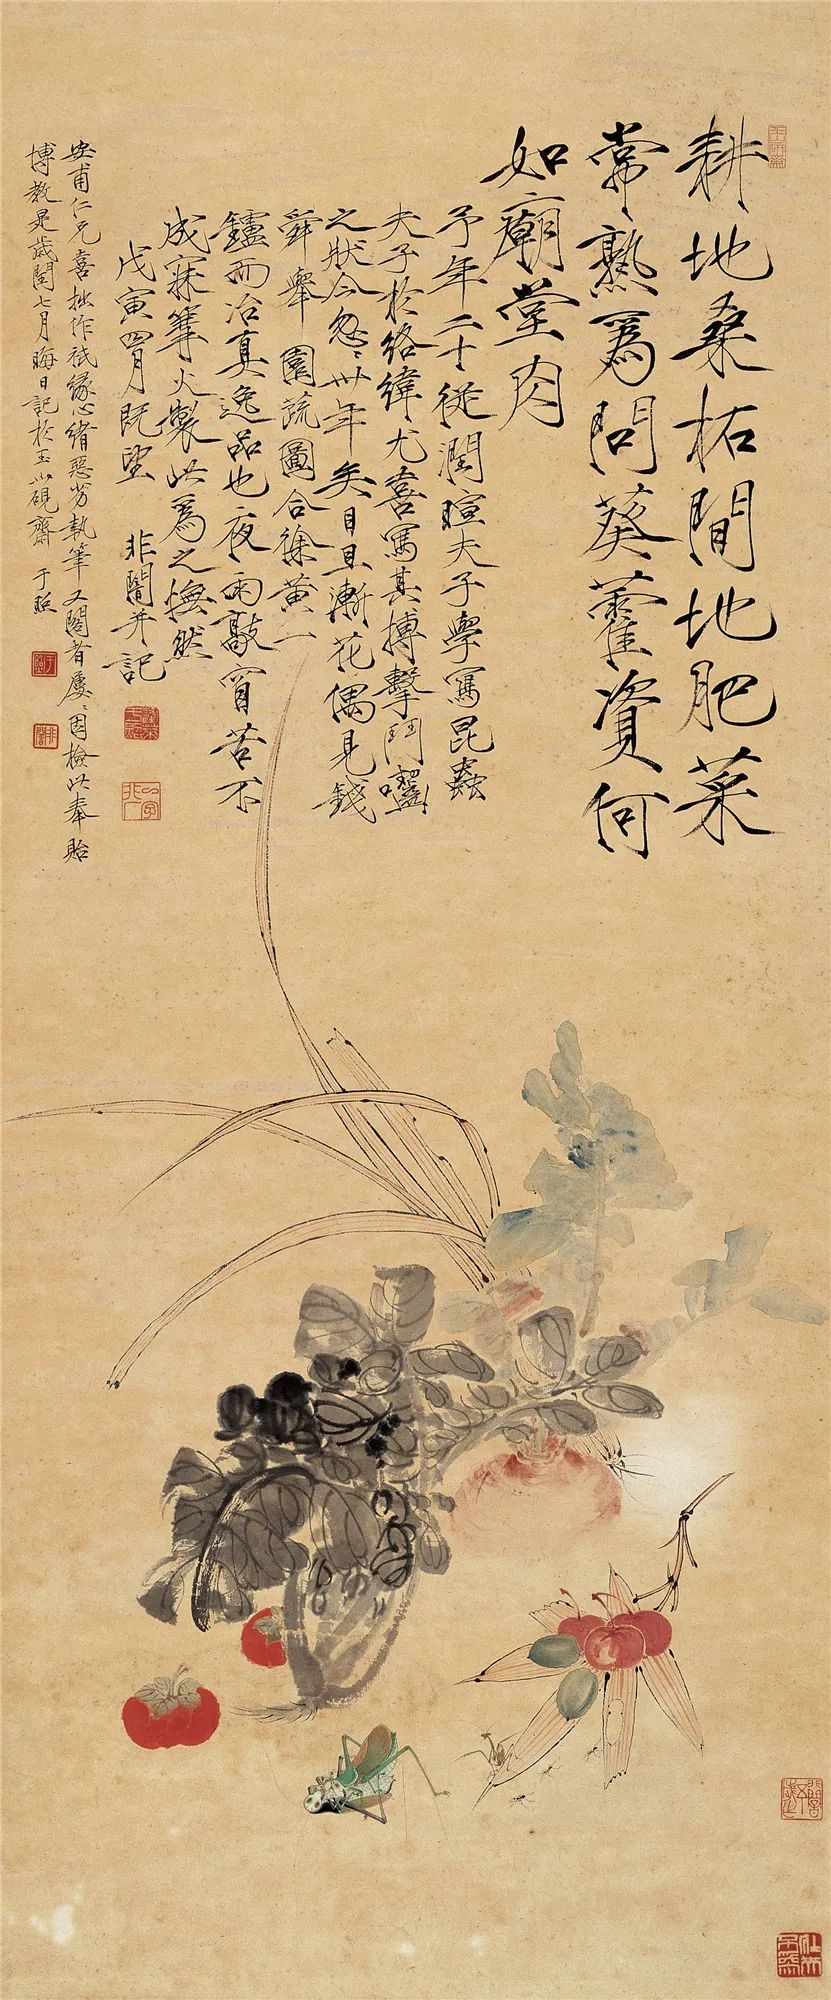 耕地桑柘間地肥菜
常熟爲問葵藿資何
如廟堂肉
予年二十從潤暄夫子學寫昆蟲
夫子於絡緯尤喜寫其搏擊鬥囓
之狀今忽〻卅年矣目且漸花偶見錢
舜舉園蔬圖合徐黃一
鑪而冶真逸品也夜雨敲窗苦不
成寐篝火製此爲之憮然
戊寅四月既望 非闇并記
安甫仁兄喜拙作祇緣心緒惡劣執筆又閣者屢〻因檢此奉貽
博教是歲閏七月晦日記於玉山硯齋 于照